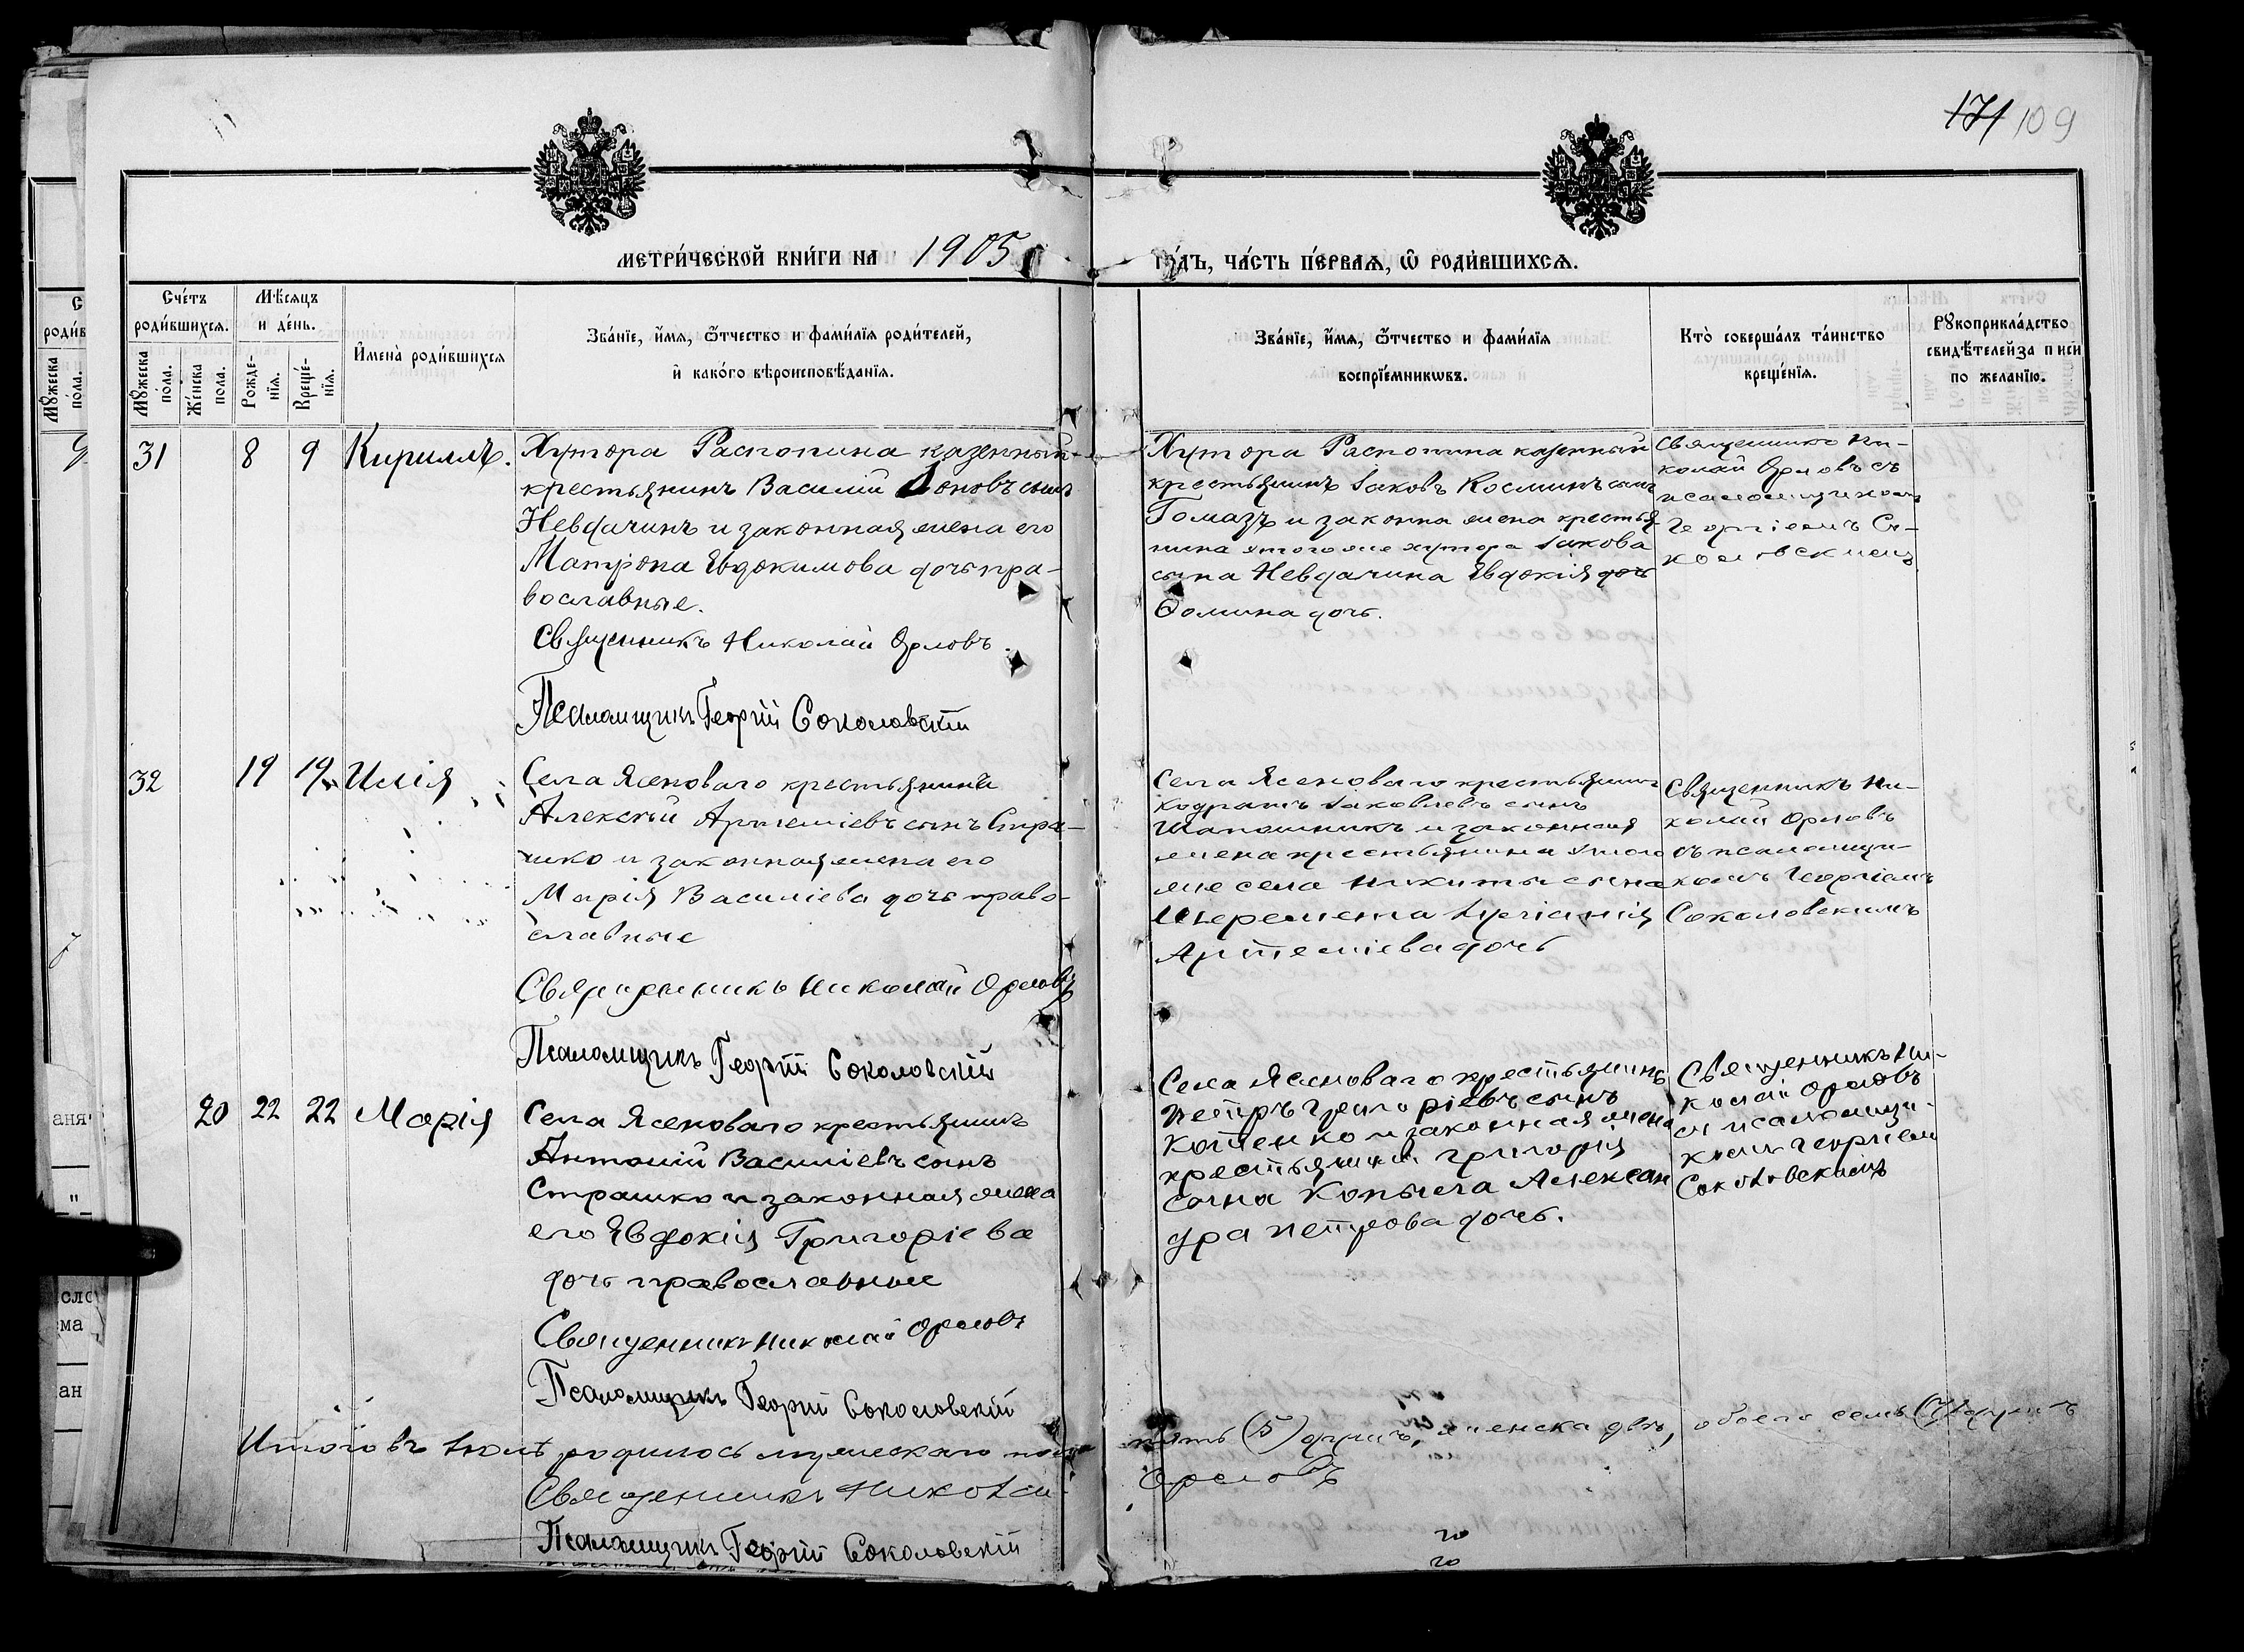 171 109
МЕТРИ́ЧЕСКОЙ КНИ́ГИ НА 1905 ГО́ДЪ, ЧА́СТЬ ПЕ́РВАѦ, Ѡ РОДИ́ВШИХСѦ.
Сче́тъ роди́вшихсѧ.
Мꙋ́жеска по́ла.
Же́нска пола.
Мѣ́сѧцъ и де́нь.
Рожде́-нїѧ.
Креще́-нїѧ.
И҆мена̀ роди́вшихсѧ
Зва́нїе, и҆́мѧ, ѻ҆́тчество и фами́лїѧ роди́телей,
и҆ како́го вѣроисповѣ́данїѧ.
Зва́нїе, и҆́мѧ, ѻ҆́тчество и фами́лїѧ
воспрїе́мникѡвъ.
Кто̀ соверша́лъ та́инство
креще́нїѧ.
Рꙋкоприкла́дство
свидѣ́телей за п иси
по жела́нїю.
31 8 9 Кириллъ.
Хутора Распопина казенный
крестьянинъ Василій сынъ
Невдачинъ и законная жена его
Матрона Явдокимова дочь пра-
вославные.
Священникъ Николай Орловъ.
Псаломщикъ Георгій Соколовскій
Хутора Распопина казенный
крестьянинъ Іаковъ Косминъ сынъ
Гомазъ и законна жена крестья-
нина этого же хутора Іакова
сына Невдачина Явдокія дочь
Ѳомина дочь.
Священникъ Ни-
колай Орловъ съ
псаломщикомъ
Георгіемъ Со-
коловскимъ
32 19 19 Илія
Села Ясеноваго крестьянинъ
Алексѣй Артеміевъ сынъ Стра-
шко и законная жена его
Марія Василіева дочь право-
славные
Священникъ Николай Орловъ
Псаломщикъ Георгій Соколовскій
Села Ясеноваго крестьянинъ
Кодратъ Іаковлевъ сынъ
Шапошникъ и законная
жена крестьянина этого
же села Никиты сына
Шеремета
Артеміева дочь
Священникъ Ни-
колай Орловъ
съ псаломщи-
комъ Георгіемъ
Соколовскимъ
20 22 22 Марія
Села Ясеноваго крестьянинъ
Антоній Василіевъ сынъ
Страшко и законная жена
его Явдокія Григоріева
дочь православные
Священникъ Николай Орловъ
Псаломщикъ Георгій Соколовскій
Села Ясеноваго крестьянинъ
Петръ Григоріевъ сынъ
Котенко и законная жена
крестьянина Григорія
сына Копыча Александ
ра Петрова дочь.
Священникъ Ни-
колай Орловъ
съ псаломщи-
комъ Георгіемъ
Соколовскимъ
Итого въ Іюлѣ родилось мужескаго пола пять (5) душъ, женска двѣ, обоего семь (7) душъ
Священникъ Николай Орловъ
Псаломщикъ Георгій Соколовскій